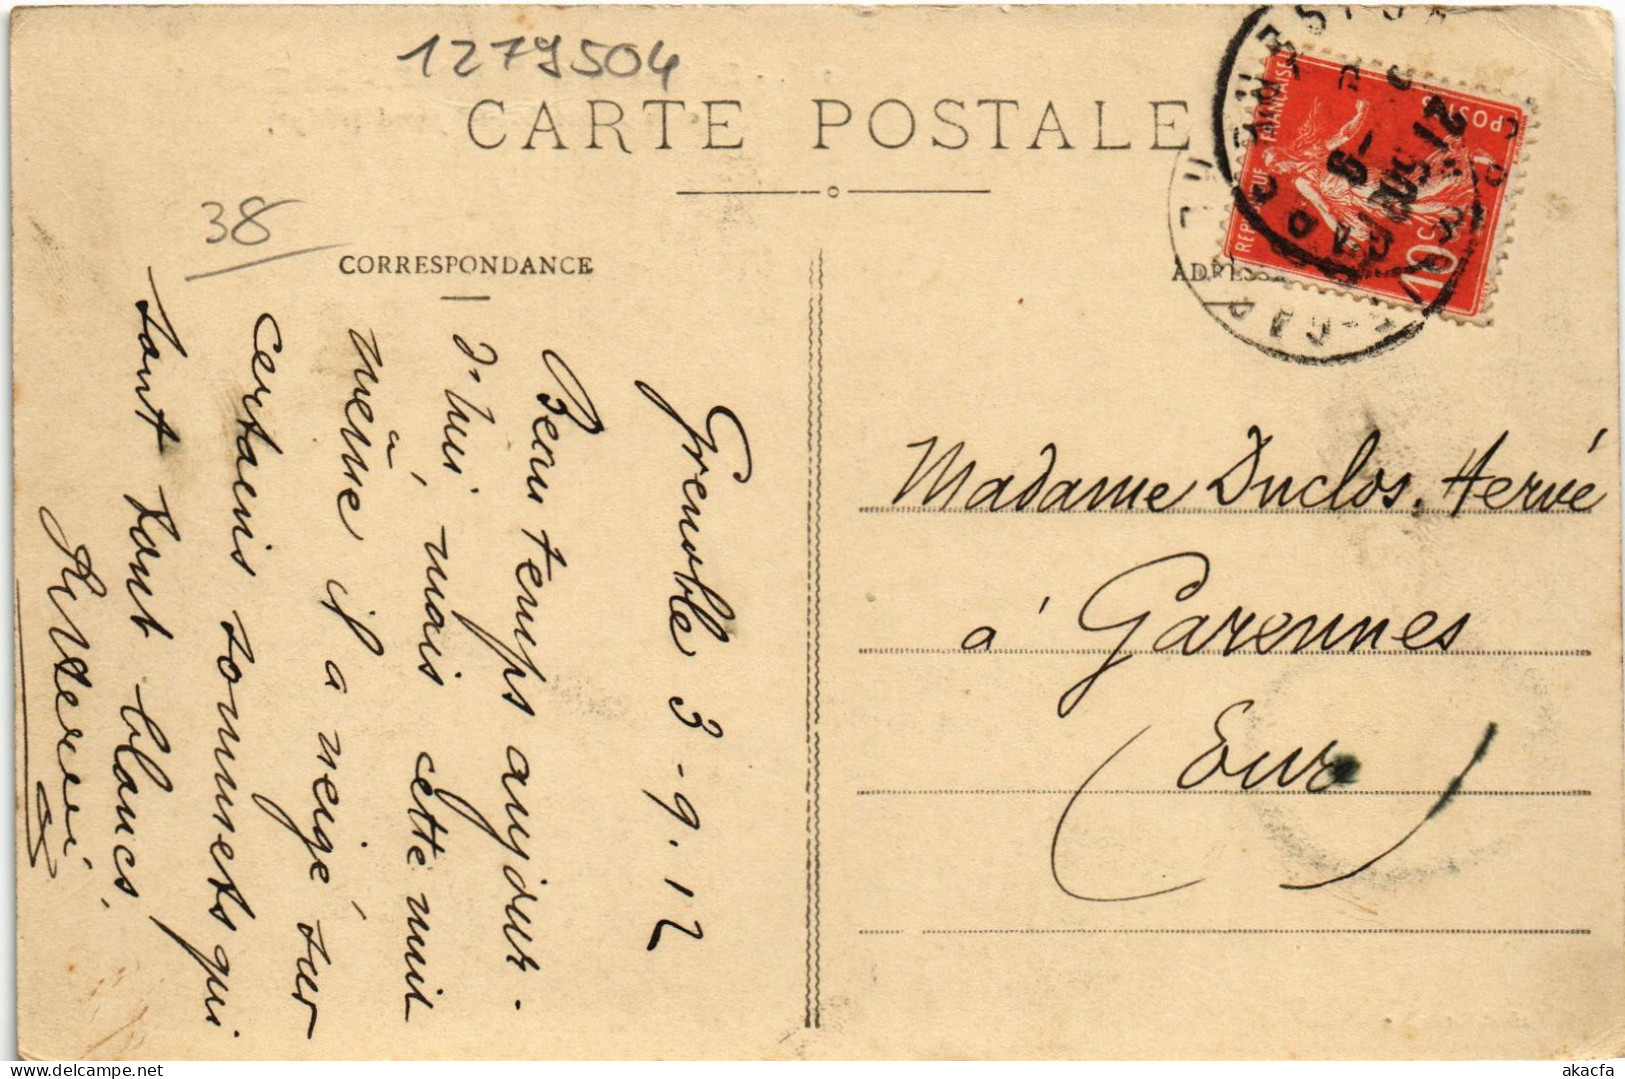 1279504
CARTE POSTALE
38
CORRESPONDANCE
Grenoble 3-9.12
Beau temps aujour-
d'hui, mais cette nuit
même il a neigé sur
à
certains sommets qui
sont tout blancs.
ADRESSE
REPUBLIQUE FRANÇAISE
POSTES
10c
Madame Duclos, Hervé
à Garennes
Eur
delcampe.net
akacfa